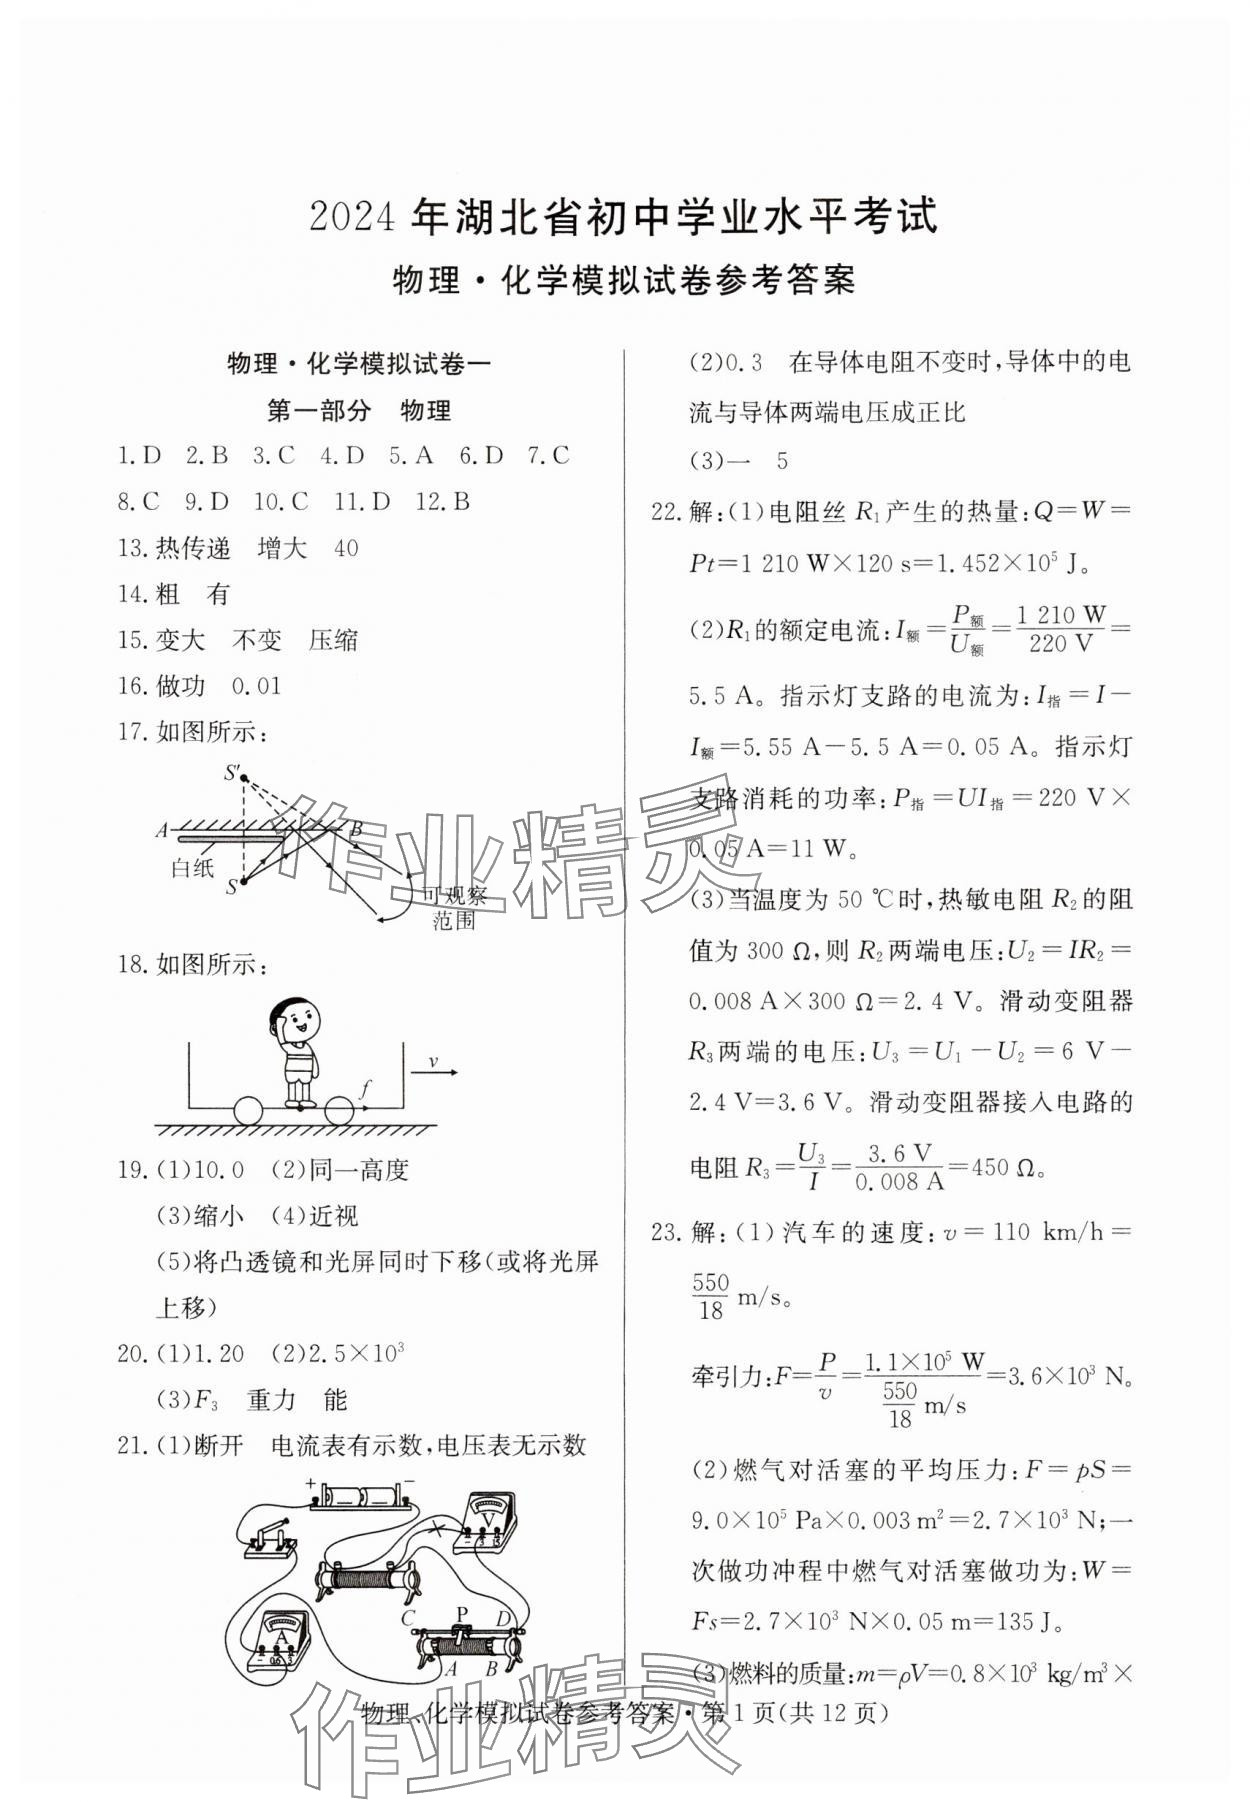 2024 年湖北省初中学业水平考试
物理·化学模拟试卷参考答案
物理·化学模拟试卷一
第一部分　物理
1.D　2.B　3.C　4.D　5.A　6.D　7.C
8.C　9.D　10.C　11.D　12.B
13.热传递　增大　40
14.粗　有
15.变大　不变　压缩
16.做功　0.01
17.如图所示:
S′
A
B
白纸
S
可观察
范围
18.如图所示:
v
f
19.(1)10.0　(2)同一高度
(3)缩小　(4)近视
(5)将凸透镜和光屏同时下移(或将光屏
上移)
20.(1)1.20　(2)2.5×10³
(3)F₃　重力　能
21.(1)断开　电流表有示数,电压表无示数
+
−
V
− 3 15
C P D
A
− 0.6 3
A B
(2)0.3　在导体电阻不变时,导体中的电
流与导体两端电压成正比
(3)一　5
22.解:(1)电阻丝 R₁产生的热量:Q=W=
Pt=1 210 W×120 s=1.452×10⁵ J。
(2)R₁的额定电流:I额=P额/U额=1 210 W/220 V=
5.5 A。指示灯支路的电流为:I指=I−
I额=5.55 A−5.5 A=0.05 A。指示灯
支路消耗的功率:P指=UI指=220 V×
0.05 A=11 W。
(3)当温度为 50 ℃时,热敏电阻 R₂的阻
值为 300 Ω,则 R₂两端电压:U₂=IR₂=
0.008 A×300 Ω=2.4 V。滑动变阻器
R₃两端的电压:U₃=U₁−U₂=6 V−
2.4 V=3.6 V。滑动变阻器接入电路的
电阻 R₃=U₃/I=3.6 V/0.008 A=450 Ω。
23.解:(1)汽车的速度:v=110 km/h=
550/18 m/s。
牵引力:F=P/v=1.1×10⁵ W/(550/18 m/s)=3.6×10³ N。
(2)燃气对活塞的平均压力:F=pS=
9.0×10⁵ Pa×0.003 m²=2.7×10³ N;一
次做功冲程中燃气对活塞做功为:W=
Fs=2.7×10³ N×0.05 m=135 J。
(3)燃料的质量:m=ρV=0.8×10³ kg/m³×
物理、化学模拟试卷参考答案·第 1 页(共 12 页)
作业精灵
作业精灵